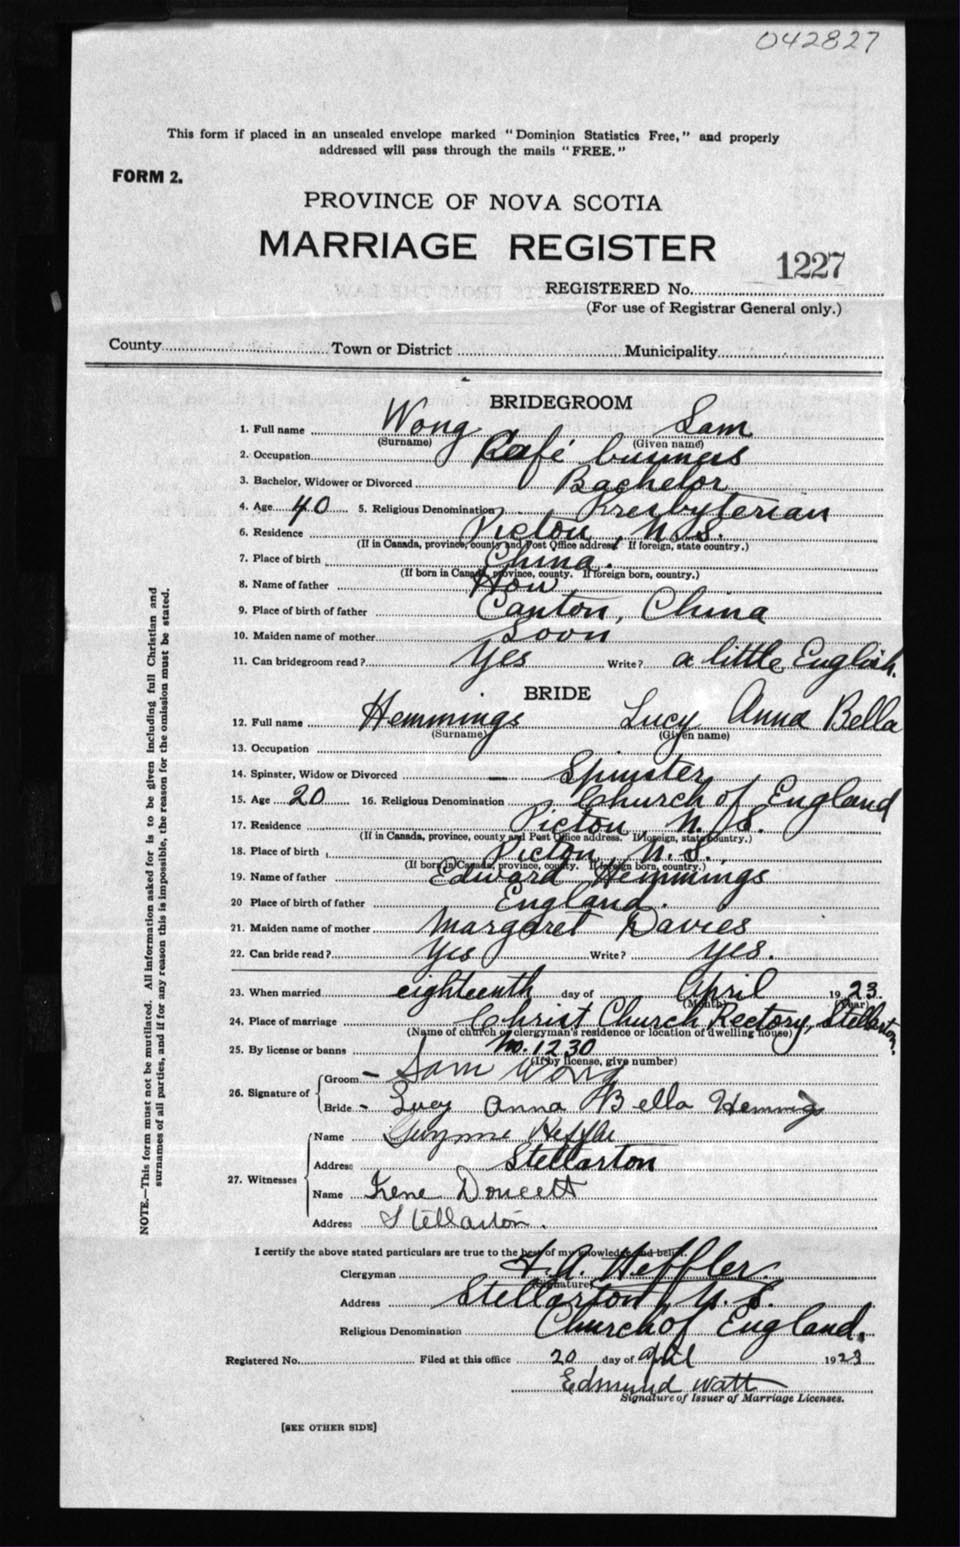 042827
This form if placed in an unsealed envelope marked "Dominion Statistics Free," and properly
addressed will pass through the mails "FREE."
FORM 2.
PROVINCE OF NOVA SCOTIA
MARRIAGE REGISTER
1227
REGISTERED No.
(For use of Registrar General only.)
County Town or District Municipality
BRIDEGROOM
1. Full name Wong Sam
(Surname) (Given name)
2. Occupation Café business
3. Bachelor, Widower or Divorced Bachelor
4. Age 40 5. Religious Denomination Presbyterian
6. Residence Pictou, N.S.
(If in Canada, province, county and Post Office address. If foreign, state country.)
7. Place of birth China.
(If born in Canada, province, county. If foreign born, country.)
8. Name of father How
9. Place of birth of father Canton, China
10. Maiden name of mother Soon
11. Can bridegroom read? Yes Write? a little English.
BRIDE
12. Full name Hemmings Lucy Anna Bella
(Surname) (Given name)
13. Occupation
14. Spinster, Widow or Divorced — Spinster
15. Age 20 16. Religious Denomination Church of England
17. Residence Pictou, N.S.
(If in Canada, province, county and Post Office address. If foreign, state country.)
18. Place of birth Pictou, N.S.
(If born in Canada, province, county. If foreign born, country.)
19. Name of father Edward Hemmings
20 Place of birth of father England.
21. Maiden name of mother Margaret Davies
22. Can bride read? Yes Write? yes.
23. When married eighteenth day of April 1923.
(Month) (Year)
24. Place of marriage Christ Church Rectory, Stellarton.
(Name of church or clergyman's residence or location of dwelling house)
25. By license or banns No. 1230
(If by license, give number)
26. Signature of
Groom Sam Wong
Bride Lucy Anna Bella Hemmings
27. Witnesses
Name Heffler
Address Stellarton
Name Irene Doucett
Address Stellarton.
I certify the above stated particulars are true to the best of my knowledge and belief.
Clergyman H. A. Heffler.
(Signature)
Address Stellarton, N.S.
Religious Denomination Church of England.
Registered No. Filed at this office 20 day of April 1923
Edmund Watt
Signature of Issuer of Marriage Licenses.
[SEE OTHER SIDE]
NOTE.—This form must not be mutilated. All information asked for is to be given including full Christian and
surnames of all parties, and if for any reason this is impossible, the reason for the omission must be stated.